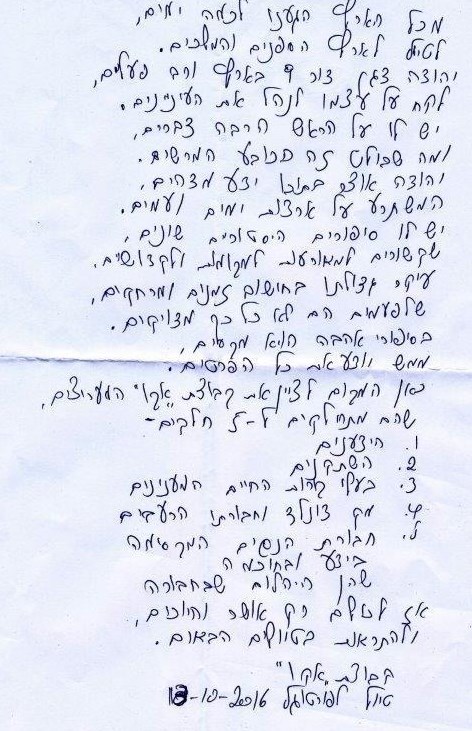 מכל הארץ הגענו לכמה ימים,
לטייל לארץ הספנים והמלכים.
יהודה צגן דור 9 בארץ ורב פעלים,
לקח על עצמו לנהל את העיניינים.
יש לו על הראש הרבה דברים,
ומה שבולט זה הכובע המרשים.
יהודה אוצר בתוכו ידע מדהים,
המשתרע על ארצות ימים ועמים.
יש לו סיפורים היסטורים שונים,
שקשורים למאורעות למקומות ולקדושים.
עיקר גדולתו בחישוב זמנים ומרחקים,
שלפעמים הם לא כל כך מדויקים.
בסיפורי אהבה הוא מקסים,
ממש יודע את כל הפרטים.
כאן המקום לציין את קבוצת "אקו" המעריצים,
שהם מתחלקים ל-5 חלקים-
1. הידענים
2. השתקנים
3. בעלי קורות החיים המענינים
4. מק דונלד וחבורתו הרעבים
5. חבורת הנשים המקסימה
בידע ובחוכמה
שהן היהלום שבחבורה
אז לכולם רק אושר וחיוכים,
ולהתראות בטיולים הבאים.
קבוצת "אקו"
טיול לפורטוגל 13-10-2016